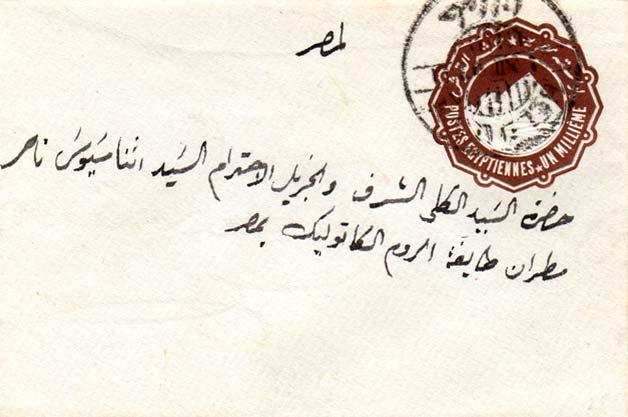 لمصر
POSTES EGYPTIENNES ★ UN MILLIÈME
حضرة السيد الكلي الشرف والجزيل الاحترام السيد اثناسيوس ناصر
مطران طايفة الروم الكاتوليك بمصر